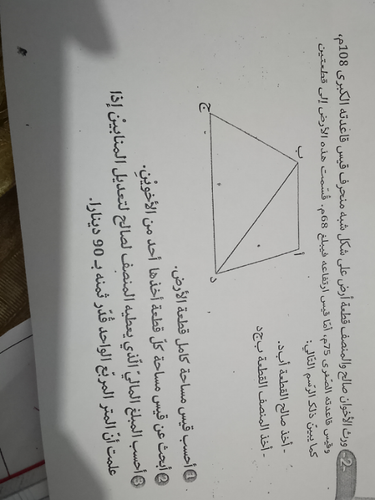 -2- ورث الأخوان صالح والمنصف قطعة أرض على شكل شبه منحرف قيس قاعدته الكبرى 108م،
وقيس قاعدته الصغرى 75م، أمّا قيس ارتفاعه فيبلغ 68م. قسّمت هذه الأرض إلى قطعتين
كما يبين ذلك الرسم التالي:
- أخذ صالح القطعة أ ب د.
- أخذ المنصف القطعة ب ج د
أ
ب
ج
د
1 أحسب قيس مساحة كامل قطعة الأرض.
2 أبحث عن قيس مساحة كلّ قطعة أخذها أحد من الأخوين.
3 أحسب المبلغ الماليّ الّذي يعطيه المنصف لصالح لتعديل المنابيْن إذا
علمت أنّ المتر المربّع الواحد قُدّر ثمنه بـ 90 دينارا.